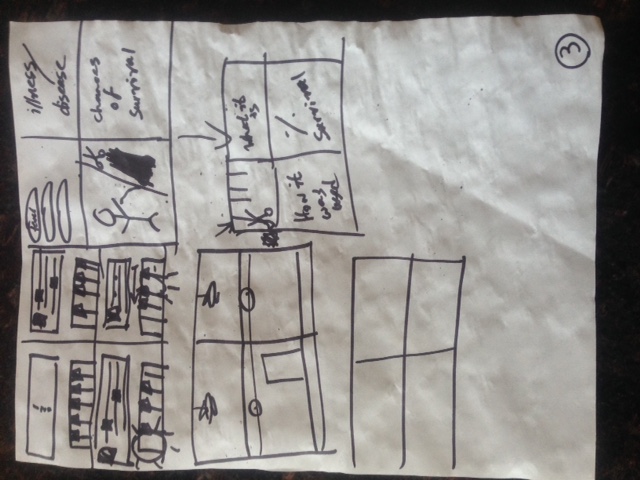 ?
Food
illness/
disease
Chances
of
Survival
What it
is
How it
was
used
%
Survival
3